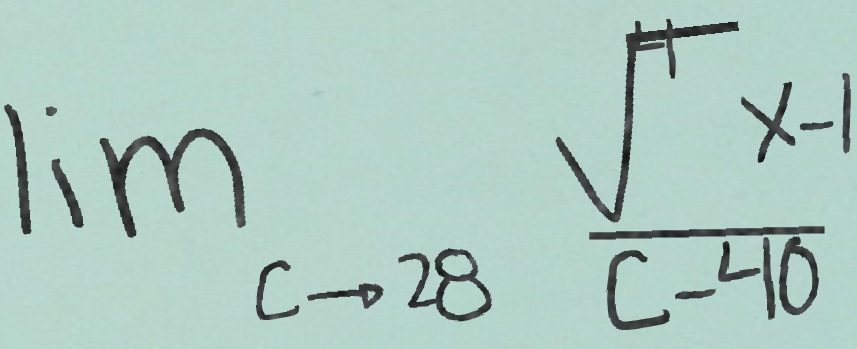 lim C→28 (√4 x-1)/(C-40)